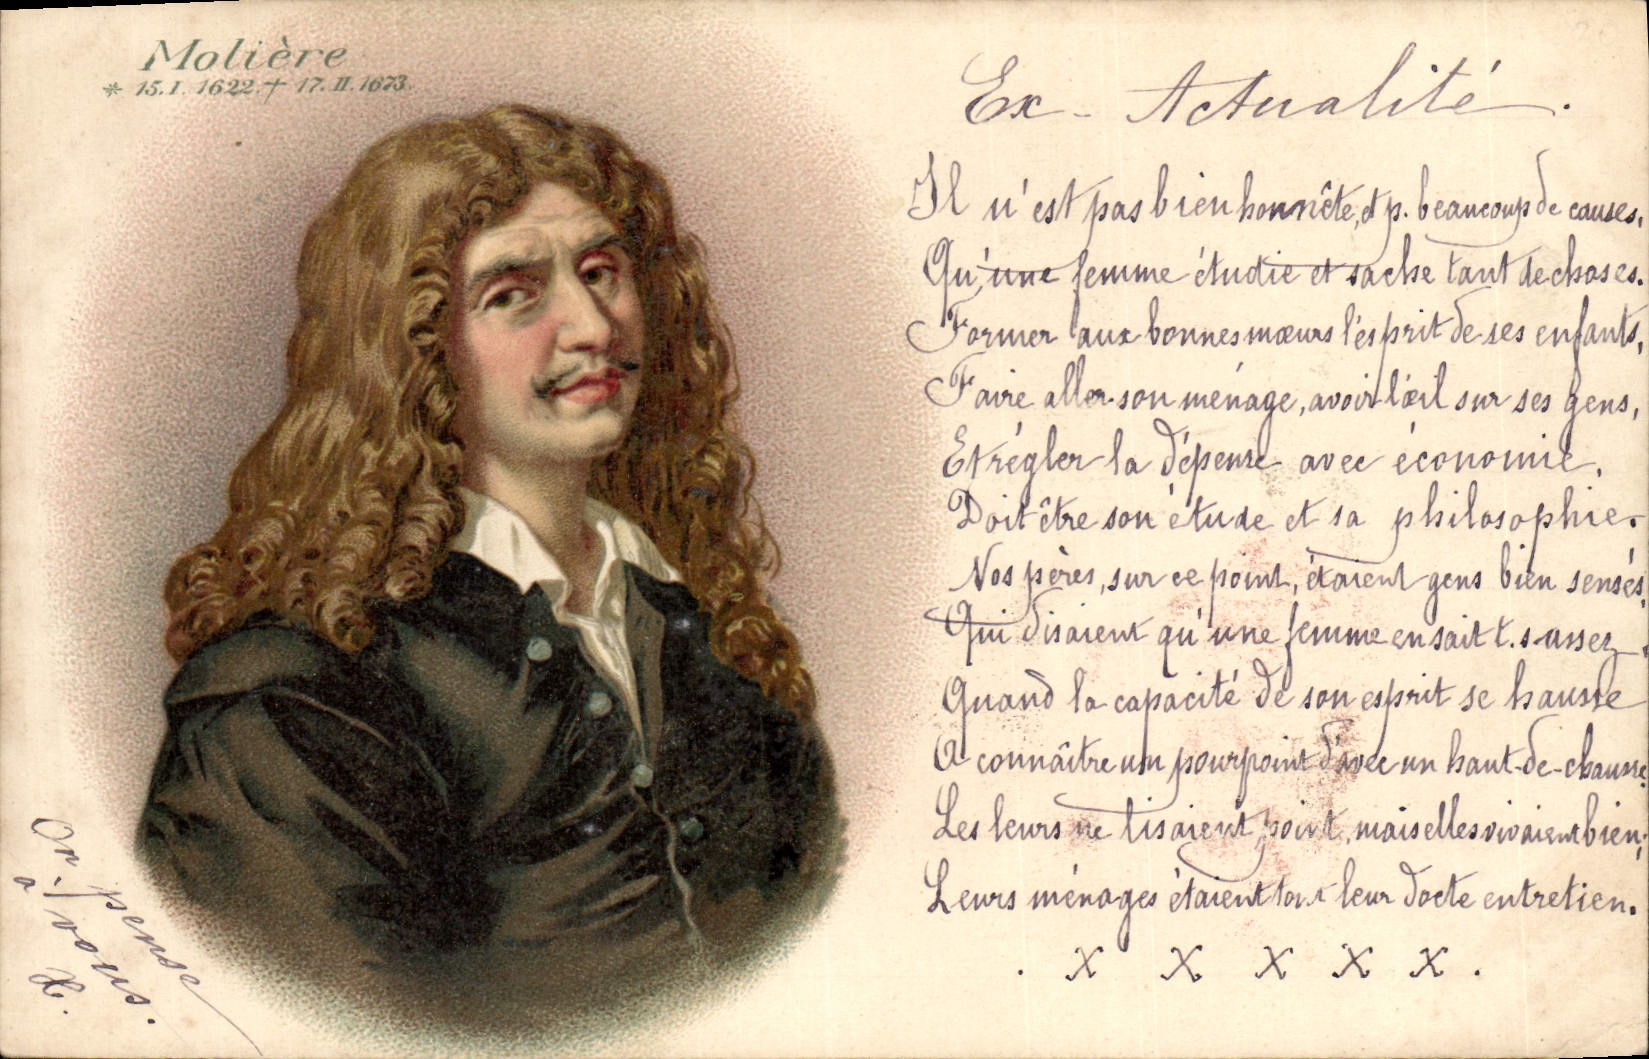 Molière
* 15.I. 1622. † 17.II.1673.
Ex-Actualité.
Il n'est pas bien honnête, et p. beaucoup de causes,
Qu'une femme étudie et sache tant de choses.
Former aux bonnes mœurs l'esprit de ses enfants,
Faire aller son ménage, avoir l'œil sur ses gens,
Et régler la dépense avec économie,
Doit être son étude et sa philosophie.
Nos pères, sur ce point, étaient gens bien sensés,
Qui disaient qu'une femme en sait t.s assez,
Quand la capacité de son esprit se hausse
A connaître un pourpoint d'avec un haut-de-chausse.
Les leurs ne lisaient point, mais elles vivaient bien;
Leurs ménages étaient tout leur docte entretien.
. X X X X X .
On pense
à vous.
X.